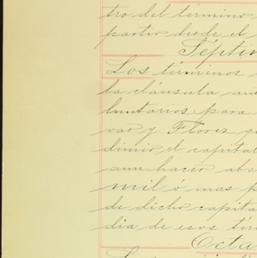 tro del termino
partir desde el
Séptim
Los términos
la cláusula an
luntarios para
var y Flores q
dimir el capital
aun hacer abo
mil ó mas p
de dicho capita
dia de esos tér
Octa